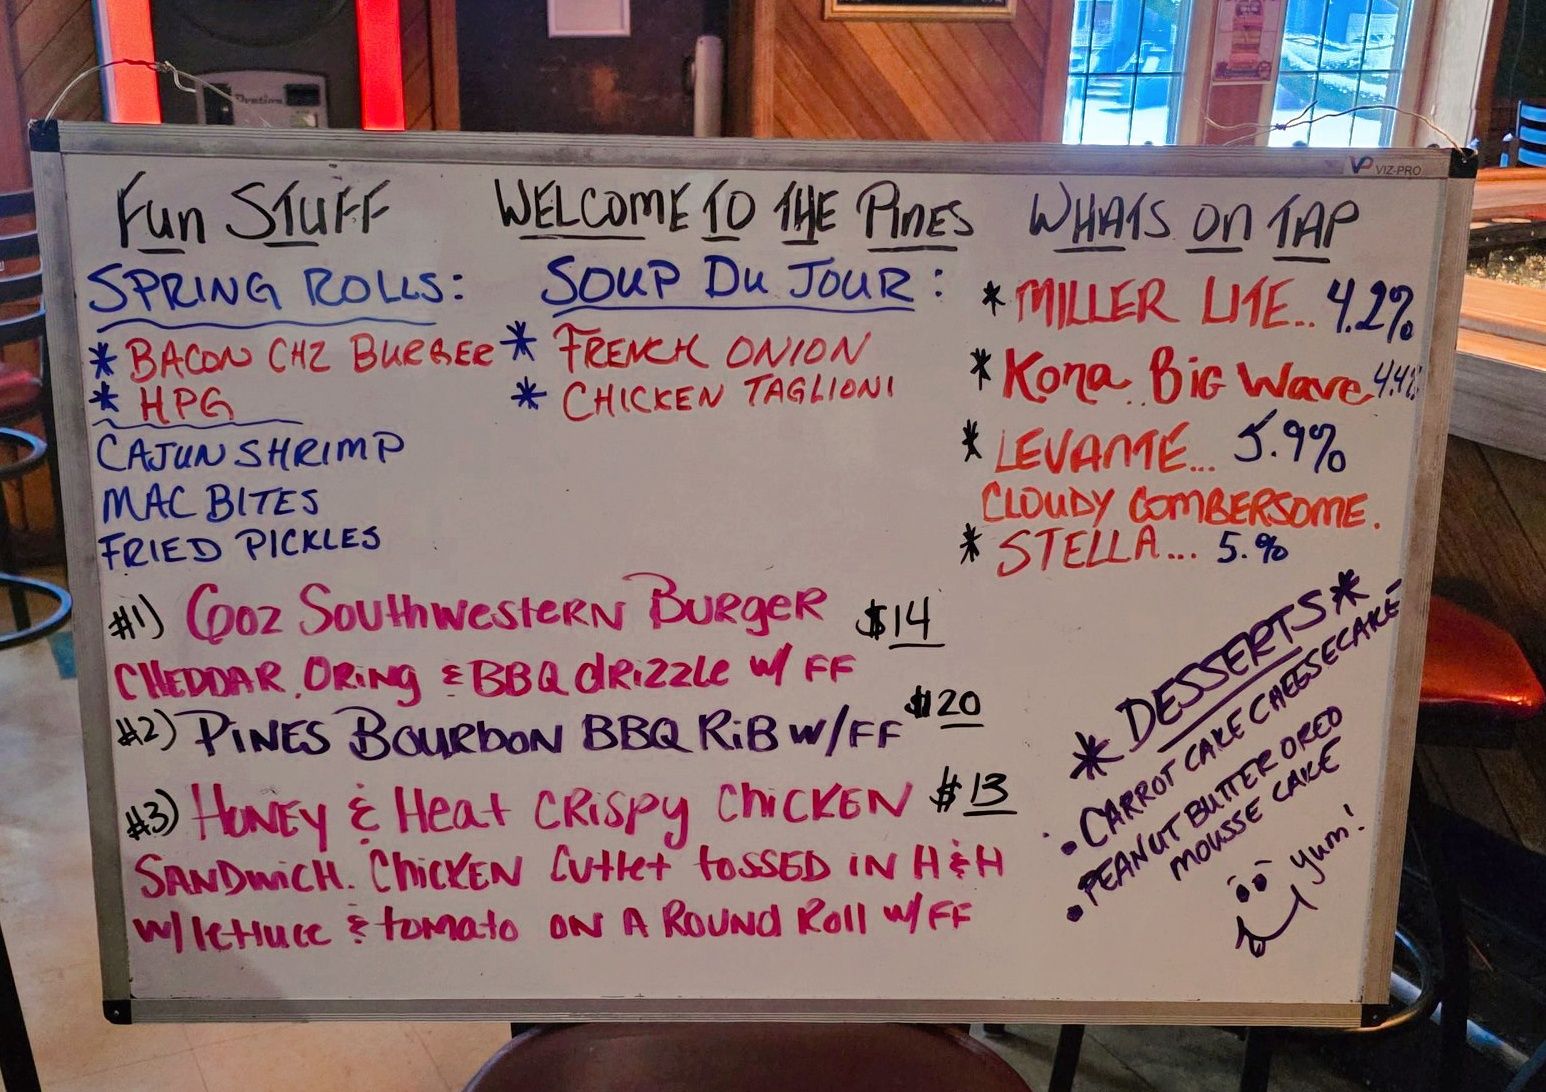 Ovation
VP VIZ-PRO
FUN STUFF
SPRING ROLLS:
* BACON CHZ BURGER
* HPG
CAJUN SHRIMP
MAC BITES
FRIED PICKLES
WELCOME TO THE PINES
SOUP DU JOUR:
* FRENCH ONION
* CHICKEN TAGLIONI
WHATS ON TAP
* MILLER LITE.. 4.2%
* Kona Big Wave 4.4%
* LEVANTE... 5.9%
CLOUDY CUMBERSOME.
* STELLA... 5.%
#1) 6oz SOUTHWESTERN BURGER $14
CHEDDAR, ORING & BBQ dRIZZLE w/ FF
#2) PINES BOURBON BBQ RIB W/FF $20
#3) HONEY & HEAT CRISPY CHICKEN $13
SANDWICH. CHICKEN CUTLET TOSSED IN H & H
w/ lettuce & tomato ON A ROUND ROLL w/ FF
* DESSERTS *
• CARROT CAKE CHEESECAKE
• PEANUT BUTTER OREO
MOUSSE CAKE
yum!